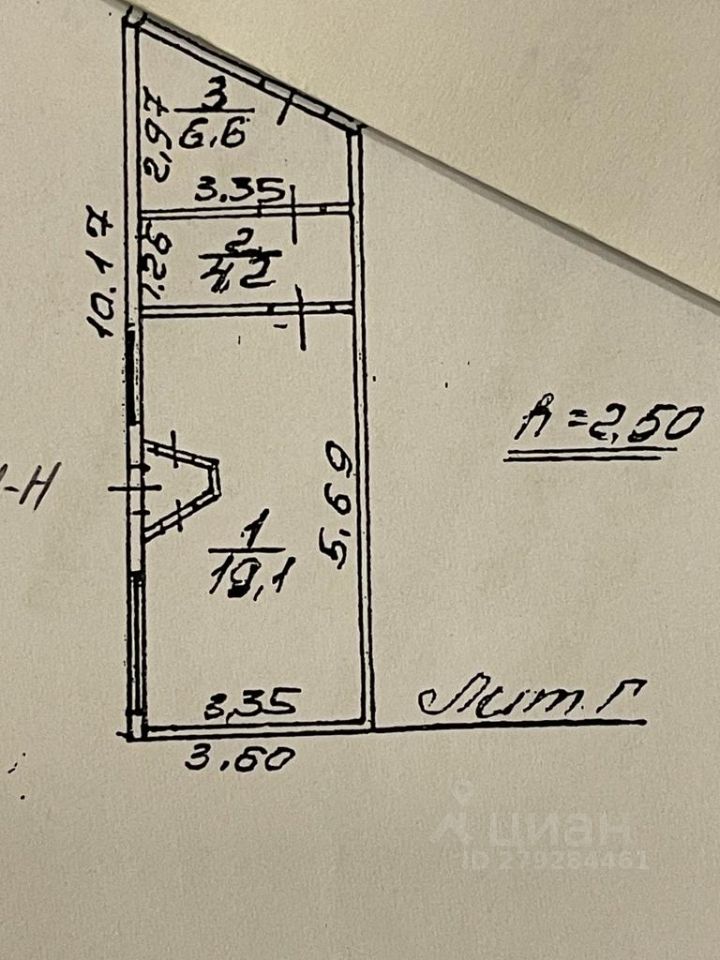 3
6,6
2,97
3.35
10.17
1.26
2
4,2
h=2,50
-Н
5,69
1
19,1
3,35
Лит. Г
3.60
циан
ID 279264461